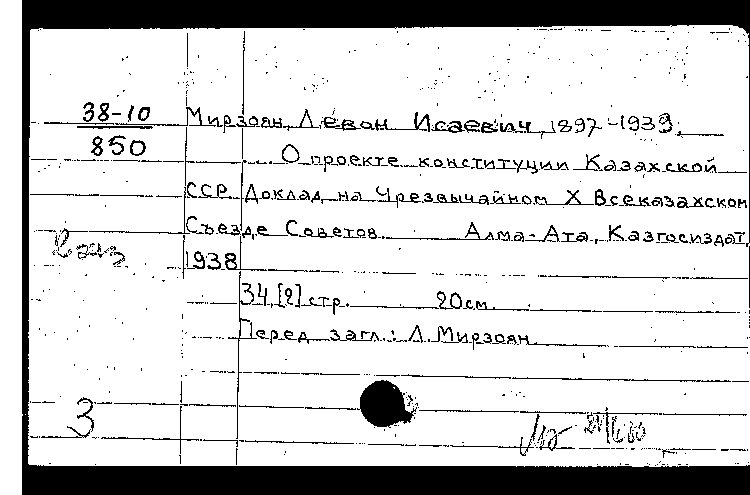 38-10
850
Мирзоян, Левон Исаевич, 1897-1939.
О проекте конституции Казахской
ССР. Доклад на Чрезвычайном X Всеказахском
Съезде Советов. Алма-Ата, Казгосиздат,
1938
34,[2] стр. 20см.
Перед загл.: Л. Мирзоян.
3